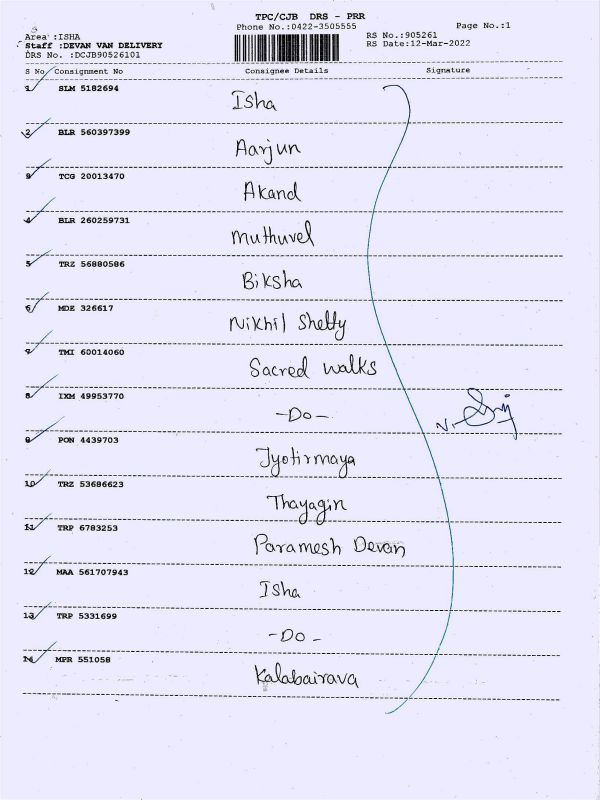 TPC/CJB DRS - PRR
Page No.:1
Phone No.:0422-3505555
Area :ISHA
RS No.:905261
Staff :DEVAN VAN DELIVERY
RS Date:12-Mar-2022
DRS No. :DCJB90526101
S No Consignment No Consignee Details Signature
1 SLM 5182694
Isha
2 BLR 560397399
Aarjun
3 TCG 20013470
Akand
4 BLR 260259731
Muthuvel
5 TRZ 56880586
Biksha
6 MDZ 326617
Nikhil Shetty
7 TMI 60014060
Sacred walks
8 IXM 49953770
-Do-
9 PON 4439703
Jyotirmaya
10 TRZ 53686623
Thayagin
11 TRP 6783253
Paramesh Devan
12 MAA 561707943
Isha
13 TRP 5331699
-Do-
14 MPR 551058
Kalabairava